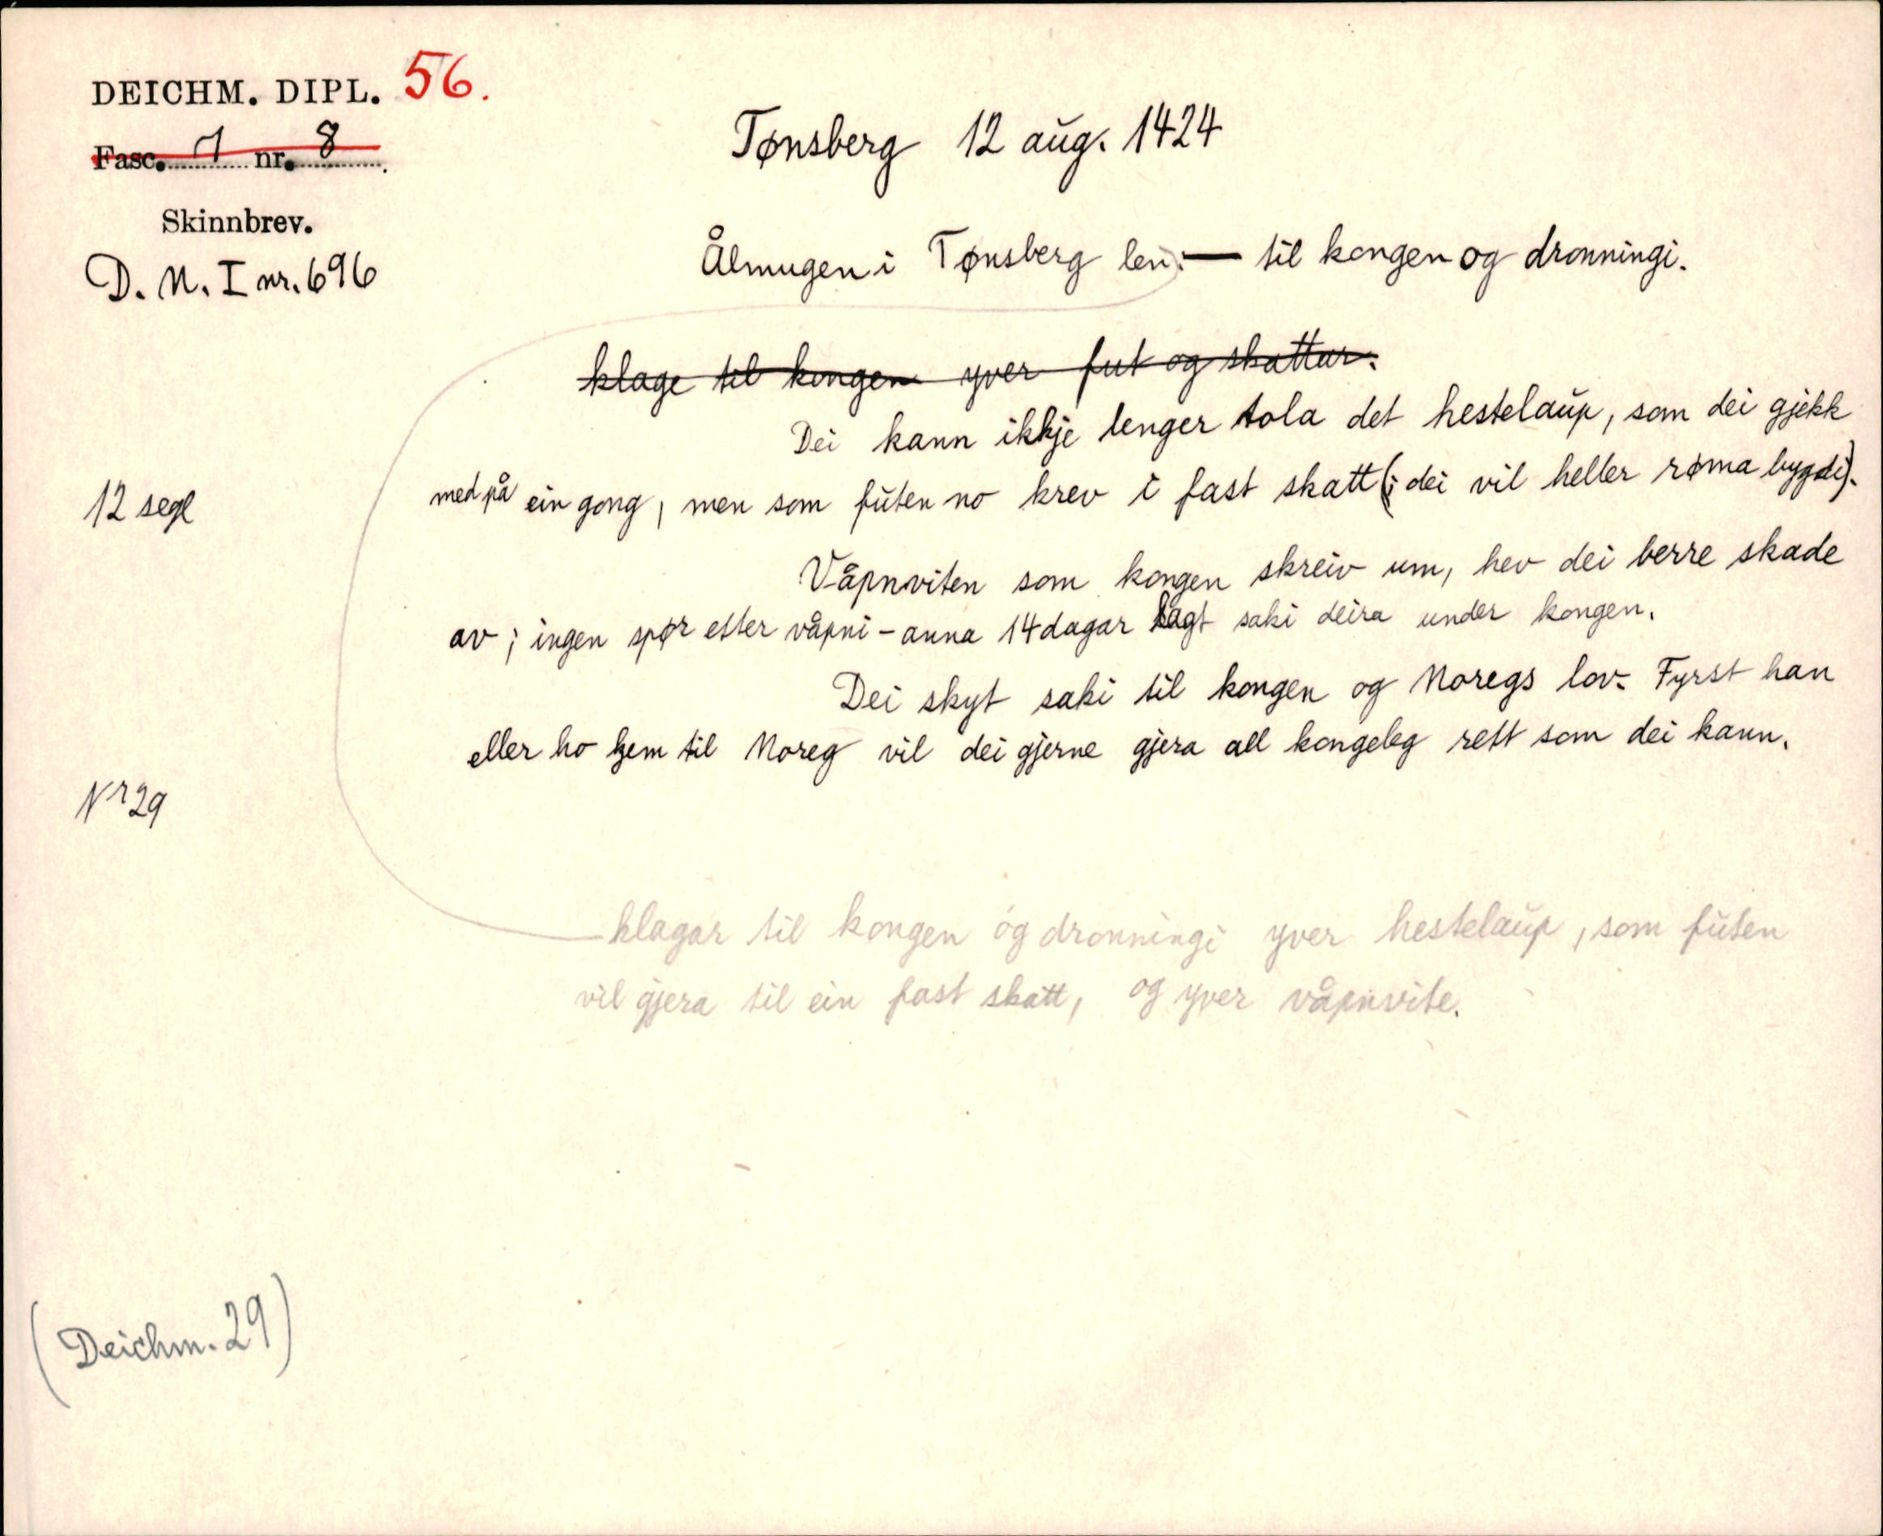 DEICHM. DIPL. 56.
Fasc. 7 nr. 8.
Skinnbrev.
D. N. I nr. 696
Tønsberg 12 aug. 1424
Ålmugen i Tønsberg len:— til kongen og dronningi.
klage til kongen yver fut og skattar.
Dei kann ikkje lenger tola det hestelaup, som dei gjekk
12 segl
med på ein gong, men som futen no krev i fast skatt (; dei vil heller røma bygdi).
Våpnviten som kongen skreiv um, hev dei berre skade
av; ingen spør etter våpni – anna 14 dagar lagt saki deira under kongen.
Dei skyt saki til kongen og Noregs lov. Fyrst han
eller ho kjem til Noreg vil dei gjerne gjera all kongeleg rett som dei kann.
Nr 29
klagar til kongen og dronningi yver hestelaup, som futen
vil gjera til ein fast skatt, og yver våpnvite.
(Deichm. 29)